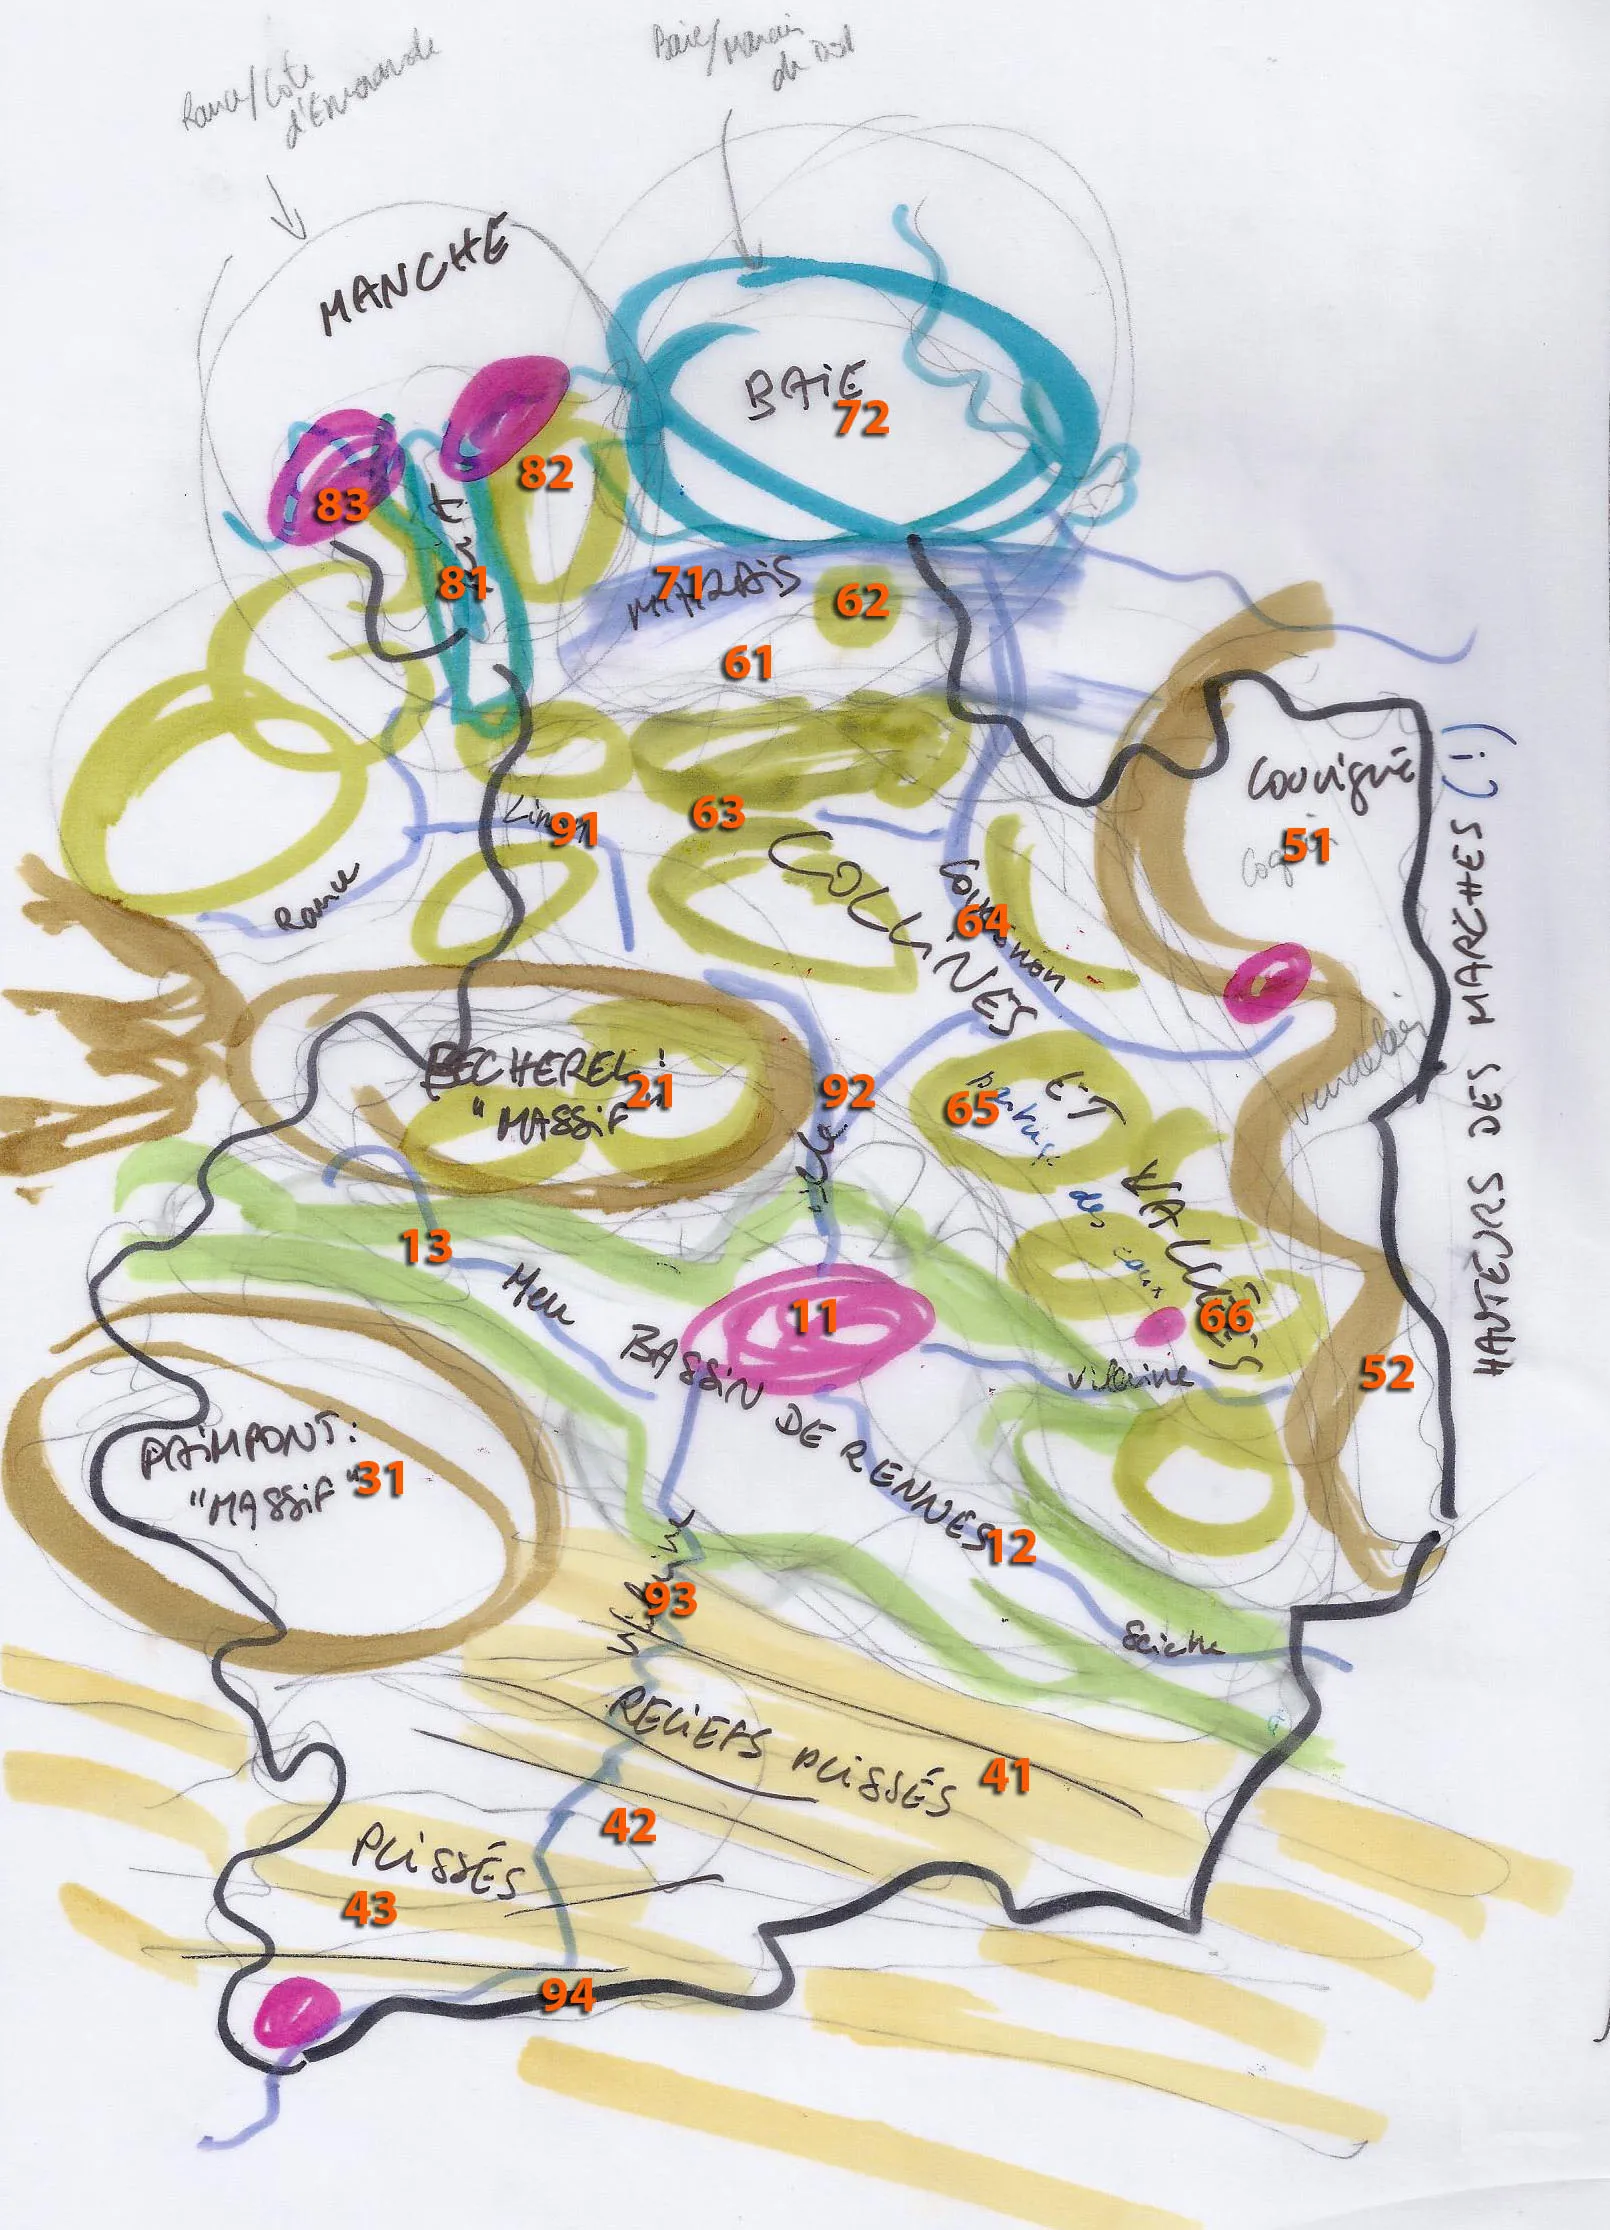 Rance/Côte
d'Emeraude
Baie/Marais
de Dol
MANCHE
BAIE
72
82
83
81
71
MARAIS
62
61
Louvigné
51
63
91
COLLINES
Couesnon
64
Rance
HAUTEURS DES MARCHES (!)
Vendelais
BECHEREL:
"MASSIF"
21
92
65
ET
des eaux
Ille
VALLÉES
13
Meu
11
66
BASSIN DE RENNES
Vilaine
52
PAIMPONT:
"MASSIF"
31
12
Vilaine
93
Seiche
RELIEFS PLISSÉS
41
42
PLISSÉS
43
94